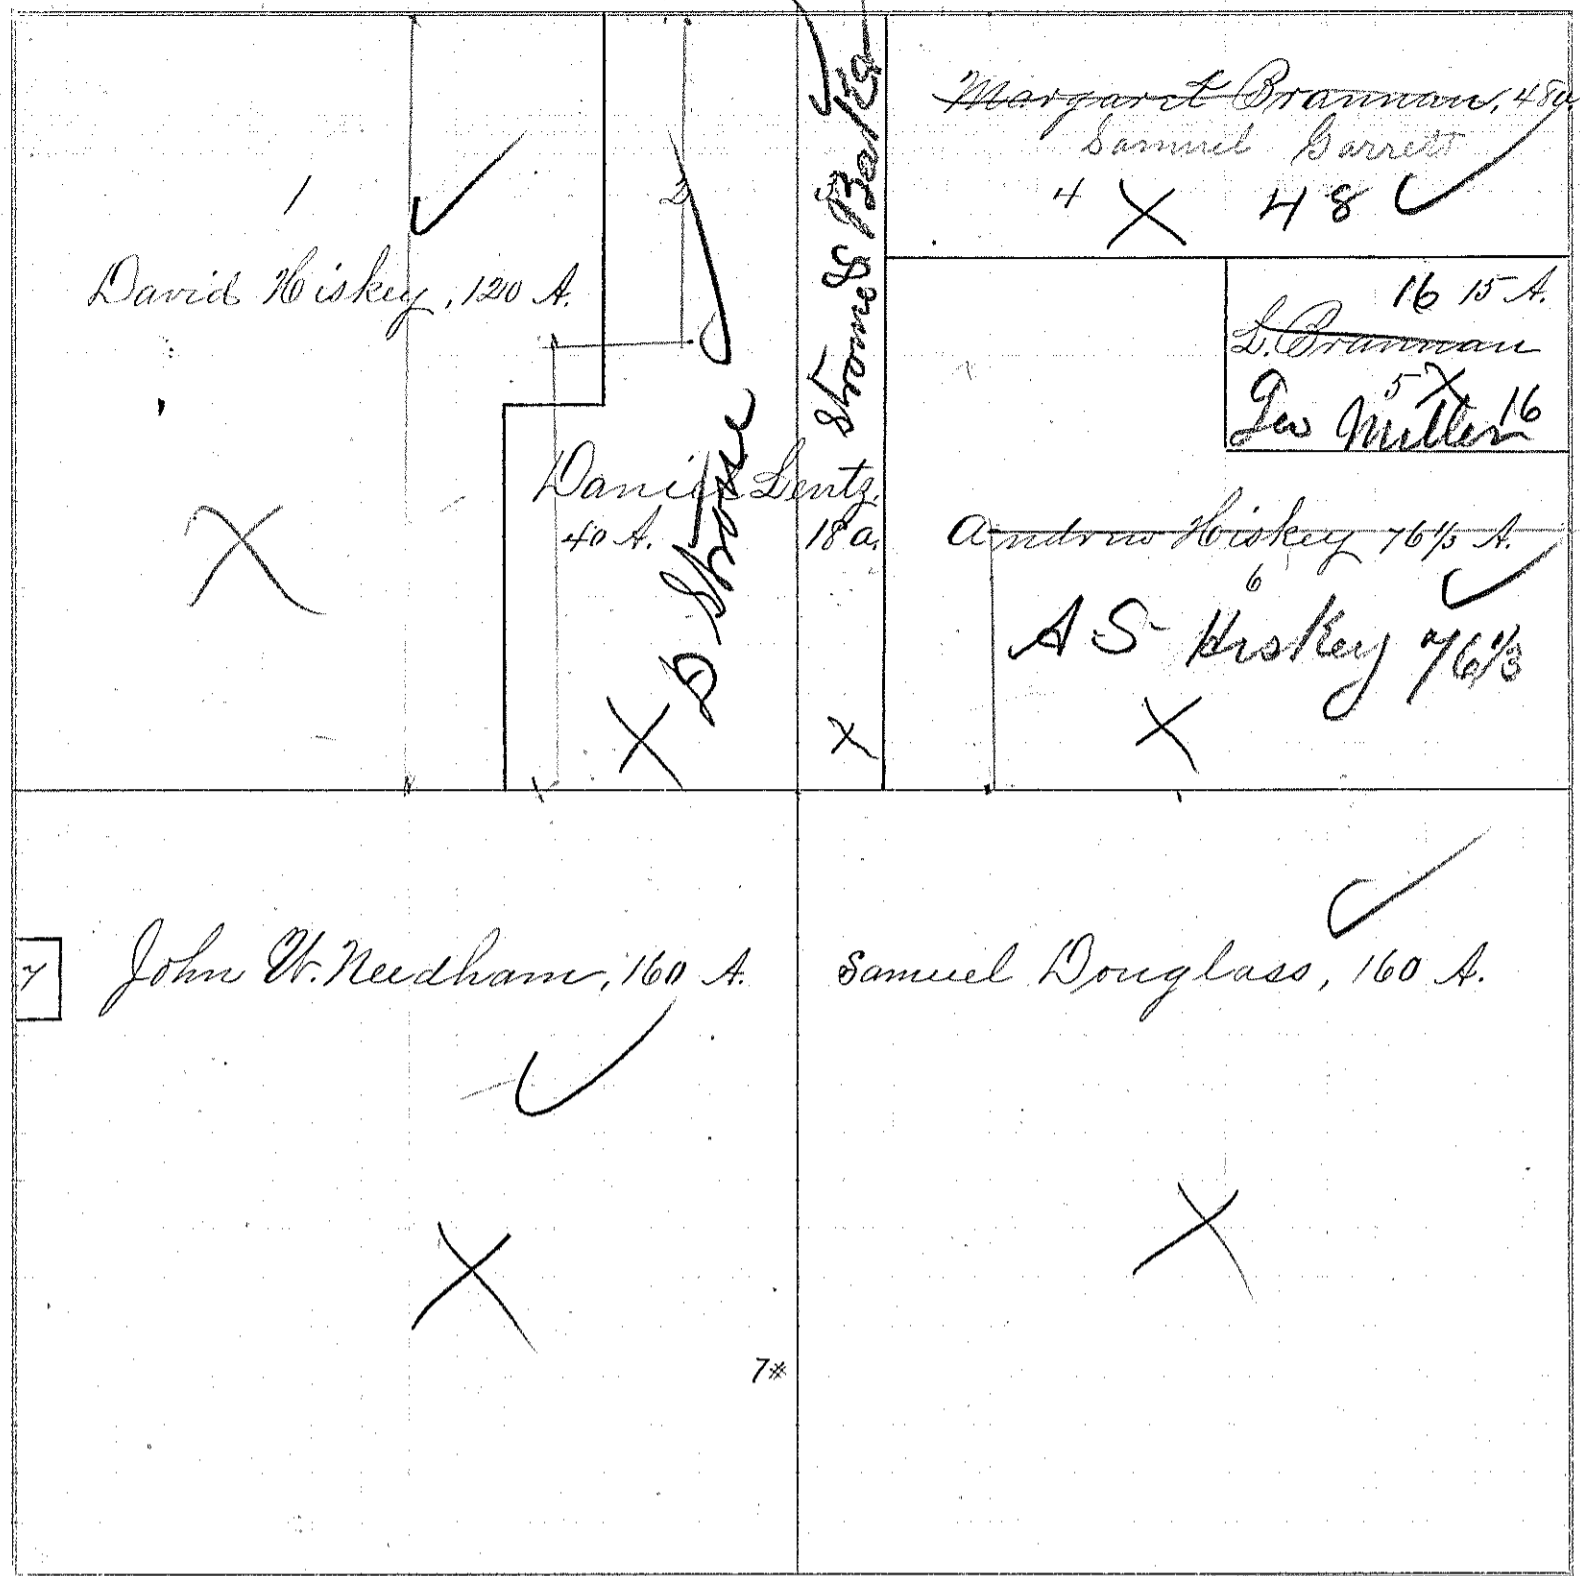 1
David Hiskey, 120 A.
2
D Strome
Daniel Lentz.
40 A.
18 a.
3
Strome &
Margaret Brannan, 48a.
Samuel Garrett
4
48
16 15 A.
L. Brannan
5
Geo Miller 16
Andrew Hiskey 76 1/3 A.
6
A S Hiskey 76 1/3
7
John W. Needham, 160 A.
Samuel Douglass, 160 A.
7#